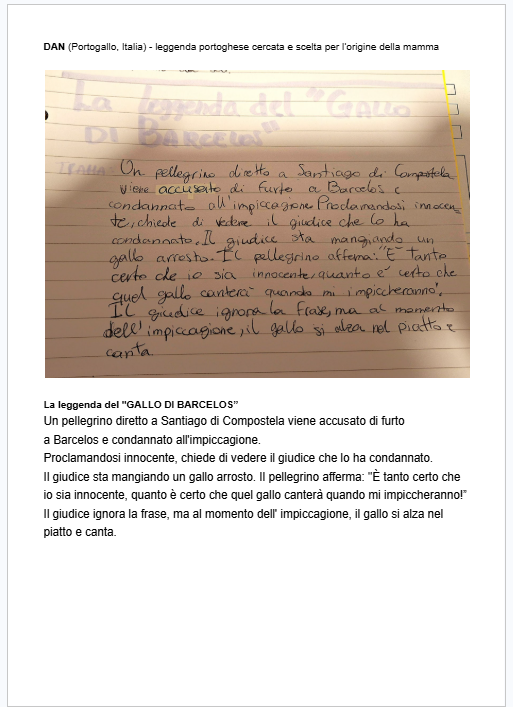 DAN (Portogallo, Italia) - leggenda portoghese cercata e scelta per l'origine della mamma
La leggenda del "GALLO
DI BARCELOS"
Un pellegrino diretto a Santiago di Compostela
viene accusato di furto a Barcelos e
condannato all'impiccagione. Proclamandosi innocen-
te, chiede di vedere il giudice che lo ha
condannato. Il giudice sta mangiando un
gallo arrosto. Il pellegrino afferma: "È tanto
certo che io sia innocente, quanto è certo che
quel gallo canterà quando mi impiccheranno".
Il giudice ignora la frase, ma al momento
dell'impiccagione, il gallo si alza nel piatto e
canta.
La leggenda del "GALLO DI BARCELOS"
Un pellegrino diretto a Santiago di Compostela viene accusato di furto
a Barcelos e condannato all'impiccagione.
Proclamandosi innocente, chiede di vedere il giudice che lo ha condannato.
Il giudice sta mangiando un gallo arrosto. Il pellegrino afferma: "È tanto certo che
io sia innocente, quanto è certo che quel gallo canterà quando mi impiccheranno!"
Il giudice ignora la frase, ma al momento dell' impiccagione, il gallo si alza nel
piatto e canta.